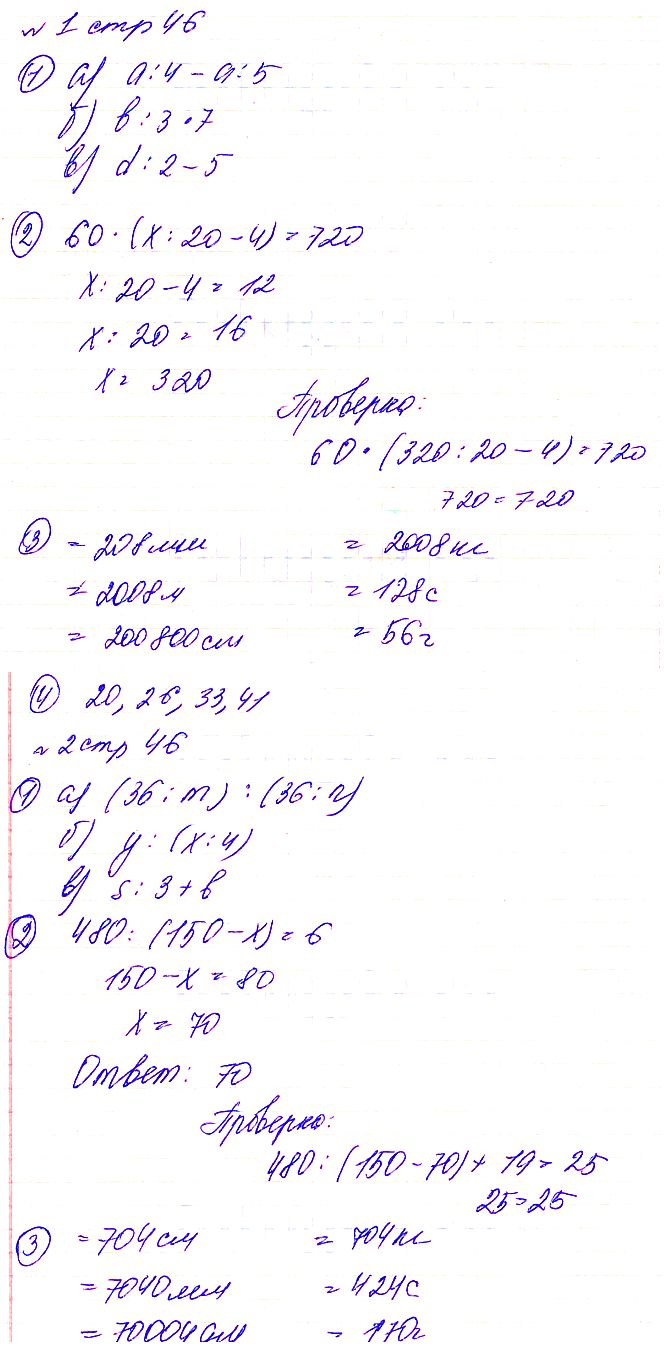 № 1 стр 46
① а) a : 4 - a : 5
б) b : 3 · 7
в) d : 2 - 5
② 60 · (x : 20 - 4) = 720
x : 20 - 4 = 12
x : 20 = 16
x = 320
Проверка:
60 · (320 : 20 - 4) = 720
720 = 720
③ = 208 мм = 2008 кг
= 2008 м = 128 с
= 200800 см = 56 г
④ 20, 26, 33, 41
№ 2 стр 46
① а) (36 : m) : (36 : n)
б) y : (x : 4)
в) s : 3 + b
② 480 : (150 - x) = 6
150 - x = 80
x = 70
Ответ: 70
Проверка:
480 : (150 - 70) + 19 = 25
25 = 25
③ = 704 см = 704 кг
= 7040 мм = 424 с
= 70004 см = 170 г